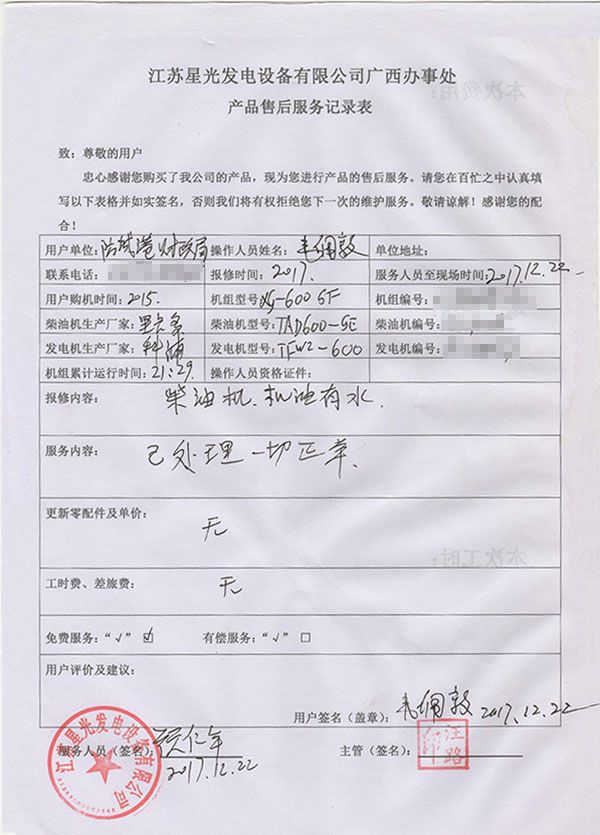 江苏星光发电设备有限公司广西办事处
产品售后服务记录表
致：尊敬的用户
忠心感谢您购买了我公司的产品，现为您进行产品的售后服务。请您在百忙之中认真填
写以下表格并如实签名，否则我们将有权拒绝您下一次的维护服务。敬请谅解！感谢您的配
合！
用户单位：防城港财政局 操作人员姓名： 单位地址：
联系电话： 报修时间：2017. 服务人员至现场时间：2017.12.22
用户购机时间：2015. 机组型号：XG-600GF 机组编号：
柴油机生产厂家： 柴油机型号：TAD600-GE 柴油机编号：
发电机生产厂家： 发电机型号：TFW2-600 发电机编号：
机组累计运行时间：21:29 操作人员资格证件：
报修内容：柴油机.机油有水.
服务内容：已处理一切正常.
更新零配件及单价：无
工时费、差旅费：无
免费服务：“√” ☑ 有偿服务：“√” □
用户评价及建议：
用户签名（盖章）： 2017.12.22
服务人员（签名）： 主管（签名）：
2017.12.22
江苏星光发电设备有限公司
汪路印
本次费用：
本次工时：